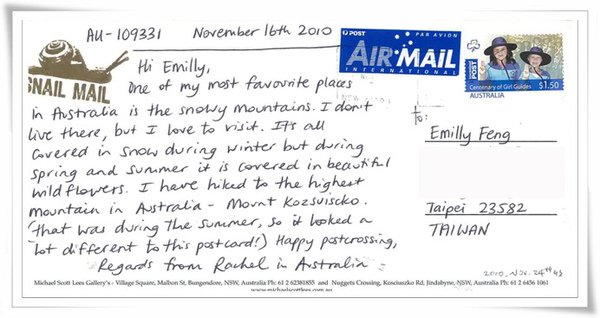 AU-109331 November 16th 2010
SNAIL MAIL
Hi Emilly,
One of my most favourite places
in Australia is the snowy mountains. I don't
live there, but I love to visit. It's all
covered in snow during winter but during
spring and summer it is covered in beautiful
wildflowers. I have hiked to the highest
mountain in Australia - Mount Kozsuiscko
(that was during the summer, so it looked a
lot different to this postcard!) Happy postcrossing,
Regards from Rachel in Australia
POST PAR AVION
AIR MAIL
INTERNATIONAL
POST
Centenary of Girl Guides
AUSTRALIA $1.50
To:
Emilly Feng
Taipei 23582
TAIWAN
2010. Nov. 24th
Michael Scott Lees Gallery's - Village Square, Malbon St, Bungendore, NSW, Australia Ph: 61 2 62381855 and Nuggets Crossing, Kosciuszko Rd, Jindabyne, NSW, Australia Ph: 61 2 6456 1061
www.michaelscottlees.com.au